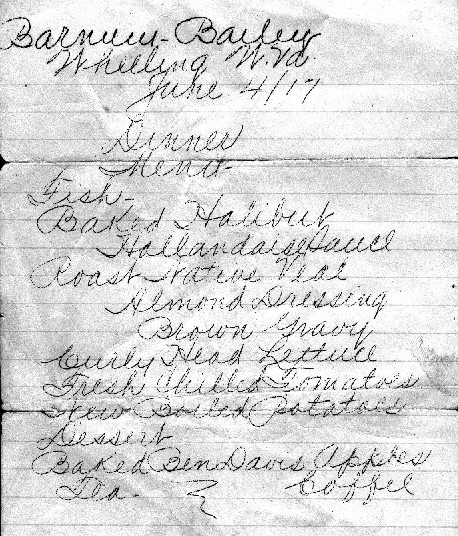 Barnum-Bailey
Wheeling W.Va
June 4/17
Dinner
Menu
Fish-
Baked Halibut
Hollandaise Sauce
Roast Native Veal
Almond Dressing
Brown Gravy
Curly Head Lettuce
Fresh Chilled Tomatoes
New Boiled Potatoes
Dessert
Baked Ben Davis Apples
Tea- Coffee